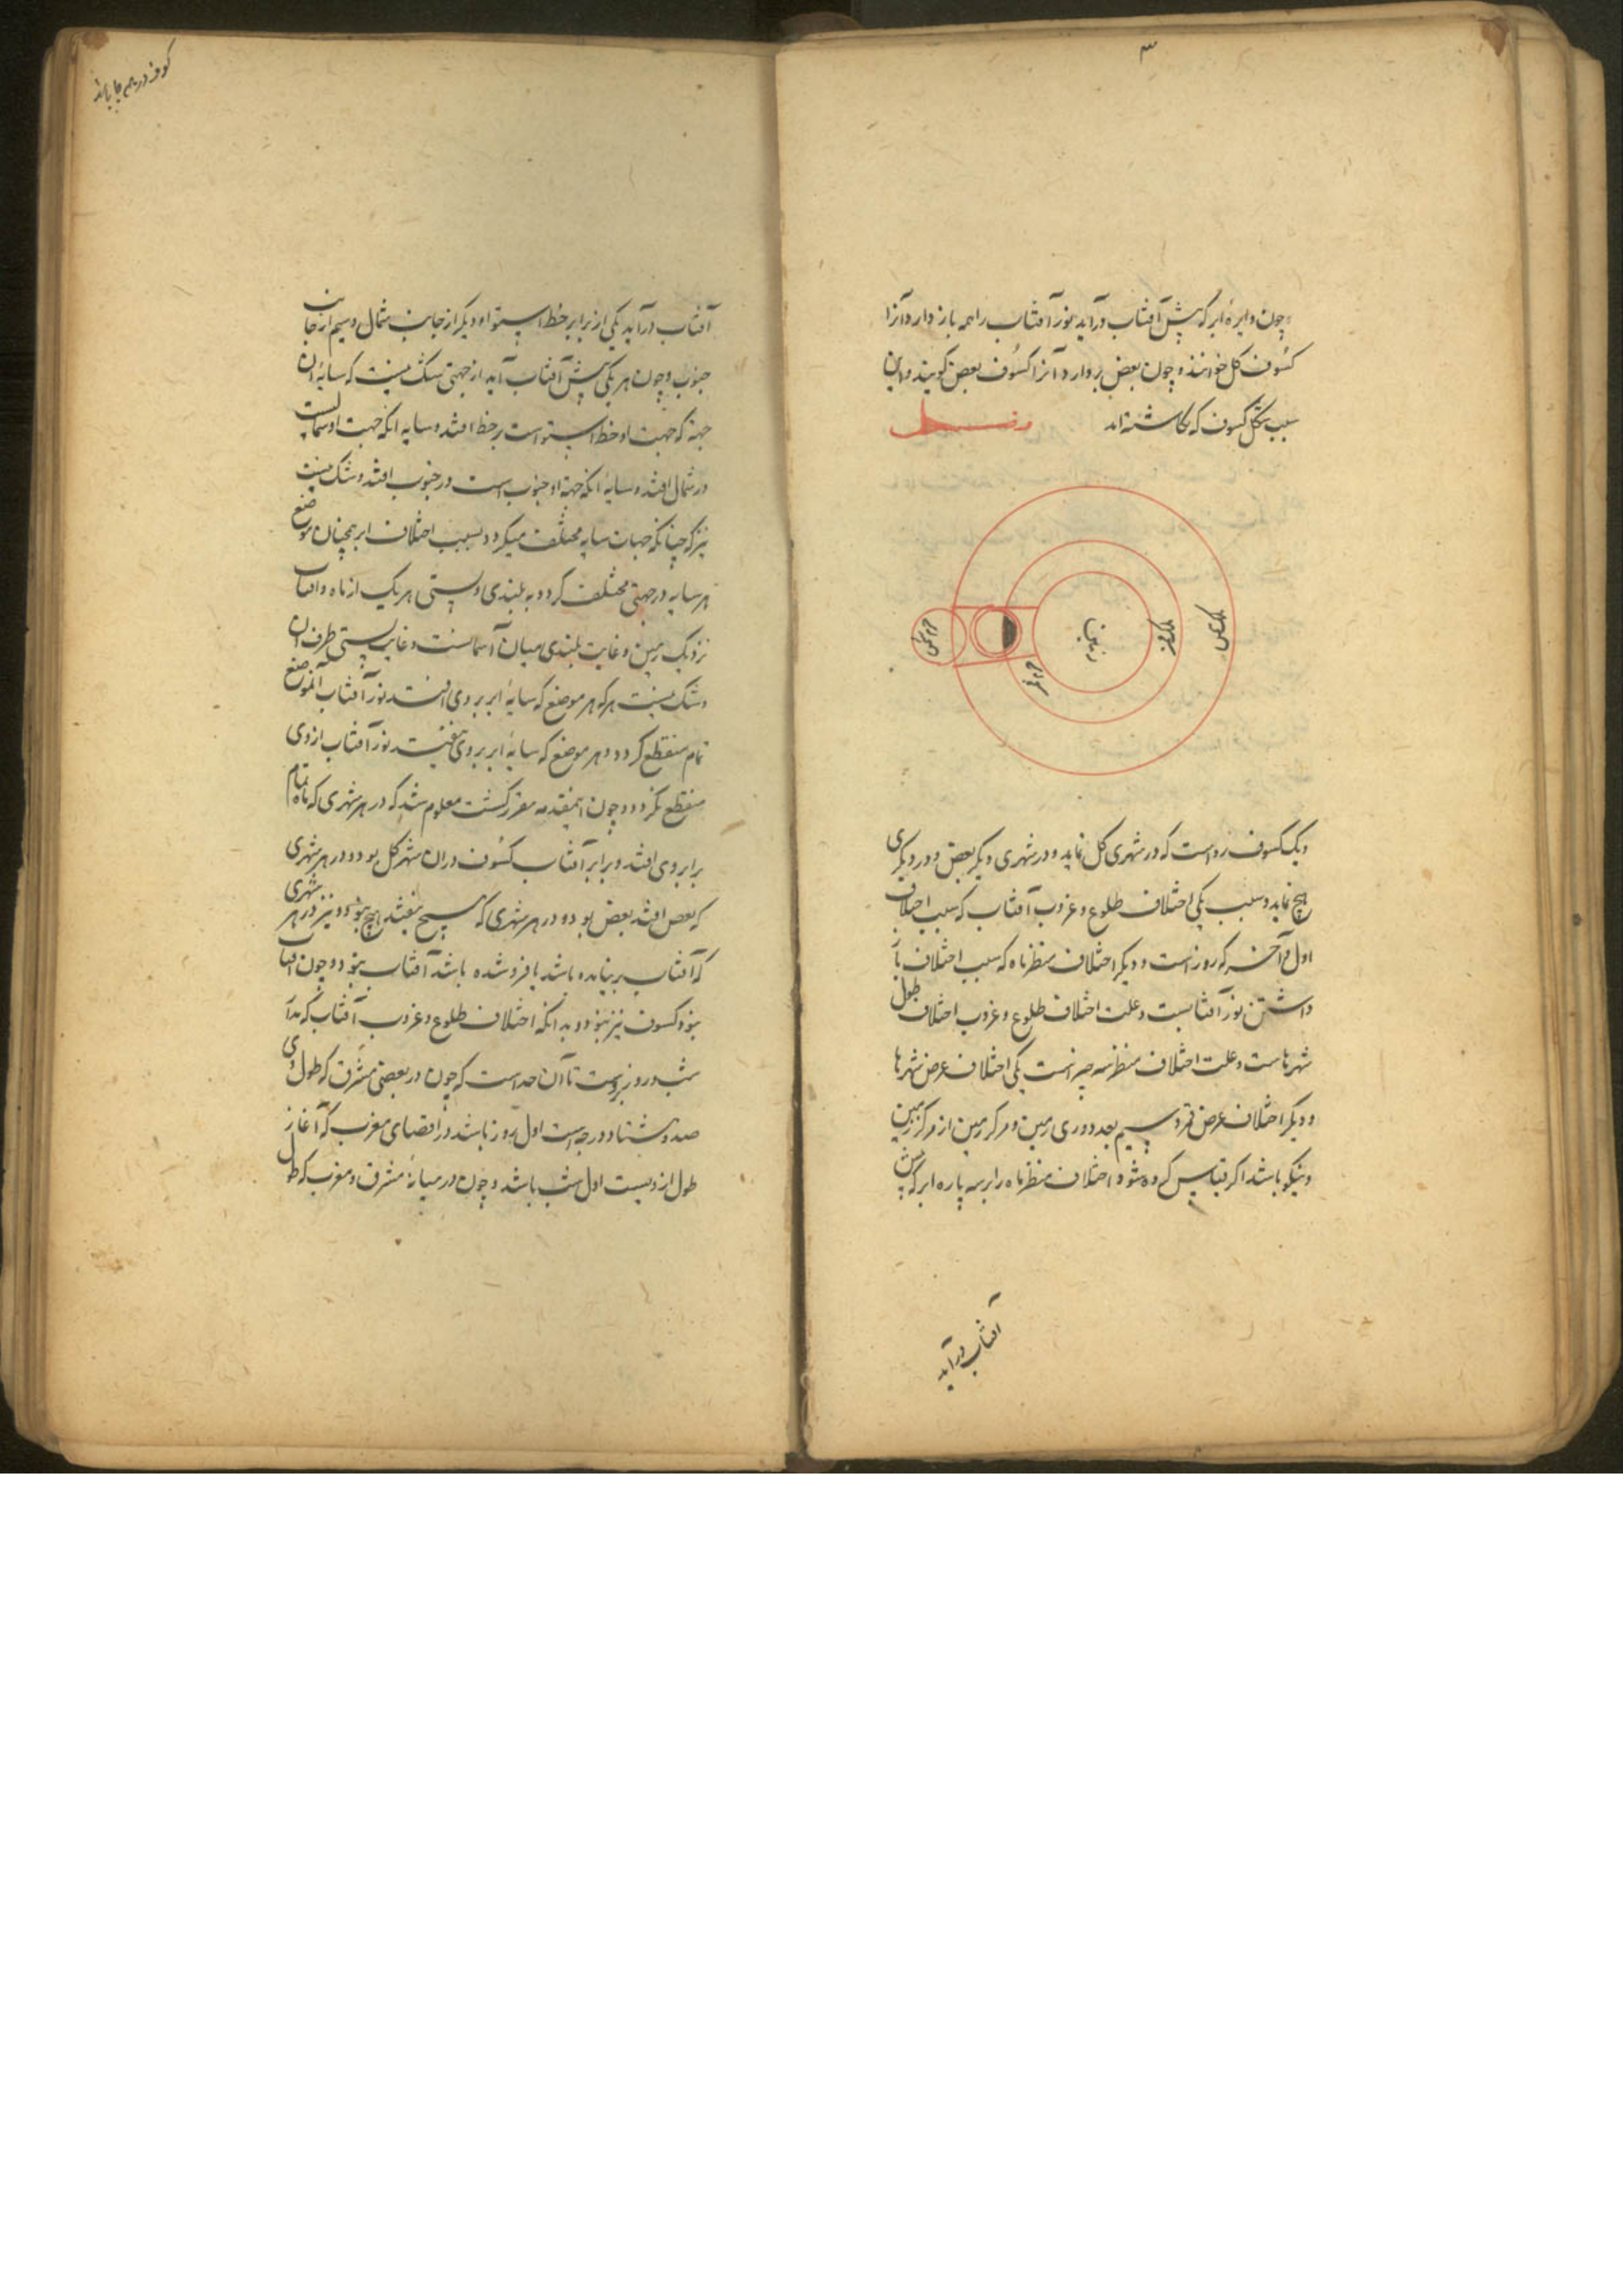 ۳
چون دایره ابر که پیش آفتاب درآید نور آفتاب را همه باز دارد آنرا
کسوف کل خوانند و چون بعض بردارد آنرا کسوف بعض گویند و این
سبب شکل کسوف که نگاشته اند
فلک شمس
فلک قمر
زمین
جرم قمر
جرم شمس
و یک کسوف رواست که در شهری کل نماید و در شهری دیگر بعض و در دیگری
هیچ نماید و سبب یکی اختلاف طلوع و غروب آفتاب که سبب اختلاف
اول و آخر که روز است و دیگر اختلاف منظر ماه که سبب اختلاف باز
داشتن نور آفتابست و علت اختلاف طلوع و غروب اختلاف طول
شهرهاست و علت اختلاف منظر سه چیز است یکی اختلاف عرض شهرها
و دیگر اختلاف عرض قمر و سیم بعد دوری زمین و مرکز زمین از مرکز زمین
و نیکو باشد اگر قیاس کرده شود اختلاف منظر ماه را بر سه پاره ابر که پیش
آفتاب درآید
کسوف در همه جا باشد
آفتاب درآید یکی از برابر خط استوا و دیگر از جانب شمال و سیم از جانب
جنوب و چون هر یکی پیش آفتاب آید از جهتی شک نیست که سایه آن
جهة که جهت او خط استواست بر خط افتد و سایه آنکه جهت او شمالیست
در شمال افتد و سایه آنکه جهة او جنوب است در جنوب افتد و شک نیست
نیز که چنانکه جهات سایه مختلف میگردد بسبب اختلاف ابر همچنان موضع
هر سایه در جهتی مختلف گردد به بلندی و پستی هر یک از ماه و آفتاب
نزدیک زمین و غایت بلندی میان آسمانست و غایت پستی طرف آن
و شک نیست هر که هر موضع که سایه ابر بر وی افتد نور آفتاب آنموضع
تمام منقطع گردد و هر موضع که سایه ابر بر وی نیفتد نور آفتاب از وی
منقطع نگردد و چون اینمقدمه مقرر گشت معلوم شد که در هر شهری که ماه تمام
برابر وی افتد و برابر آفتاب کسوف در آن شهر کل بود و در هر شهری
که بعض افتد بعض بود و در هر شهری که هیچ نیفتد هیچ نبود و نیز در هر شهری
که آفتاب برنیامده باشد یا فرو شده باشد آفتاب نبود و چون آفتاب
نبود کسوف نیز نبود و بدانکه اختلاف طلوع و غروب آفتاب که بدان
شب و روز بروست تا آن حد است که چون در بعضی مشرق که طول وی
صد و هشتاد درجه است اول روز باشد در اقصای مغرب که آغاز
طول از ویست اول شب باشد و چون در میانه مشرق و مغرب که طول